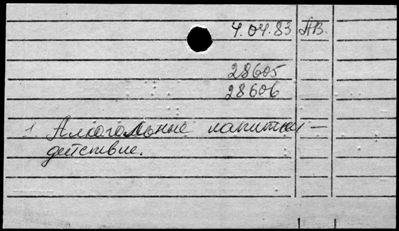 4.04.83 АВ
28605
28606
1 Алкогольные напитки –
действие.